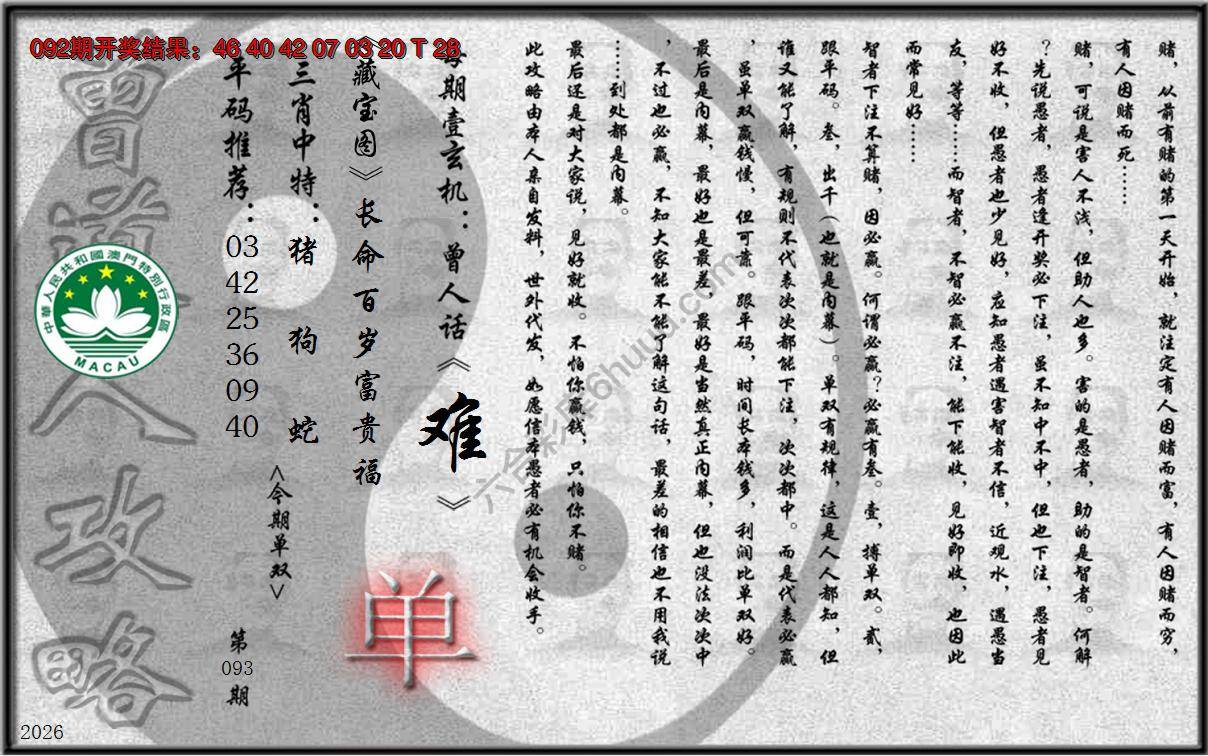 092期开奖结果：46 40 42 07 03 20 T 28
赌，从前有赌的第一天开始，就注定有人因赌而富，有人因赌而穷，
有人因赌而死……
赌，可说是害人不浅，但助人也多。害的是愚者，助的是智者。何解
？先说愚者，愚者逢开奖必下注，虽不知中不中，但也下注，愚者见
好不收，但愚者也少见好，应知愚者遇害智者不信，近观水，遇愚当
友，等等……而智者，不智必赢不注，能下能收，见好即收，也因此
而常见好……
智者下注不算赌，因必赢。何谓必赢？必赢有叁。壹，搏单双。贰，
跟平码。叁，出千（也就是内幕）。单双有规律，这是人人都知，但
谁又能了解，有规则不代表次次都能下注，次次都中。而是代表必赢
，虽单双赢钱慢，但可靠。跟平码，时间长本钱多，利润比单双好。
最后是内幕，最好也是最差，最好是当然真正内幕，但也没法次次中
，不过也必赢，不知大家能不能了解这句话，最差的相信也不用我说
……到处都是内幕。
最后还是对大家说，见好就收。不怕你赢钱，只怕你不赌。
此攻略由本人亲自发料，世外代发，如愿信本愚者必有机会收手。
每期壹玄机：曾人话《难》
《藏宝图》长命百岁富贵福
三肖中特：猪 狗 蛇
平码推荐：03 42 25 36 09 40
<今期单双>
单
第093期
曾道人攻略
中華人民共和國澳門特別行政區
MACAU
六合彩库6huuu.com
2026